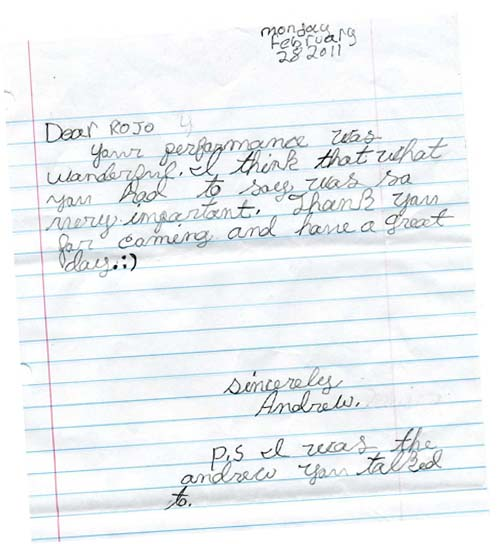 monday
February
28 2011
Dear ROJO
Your performance was
wanderful. I think that what
you had to say was so
very impartant. Thank you
for coming and have a great
day.:)
Sincerely
Andrew.
P.S I was the
andrew you talked
to.